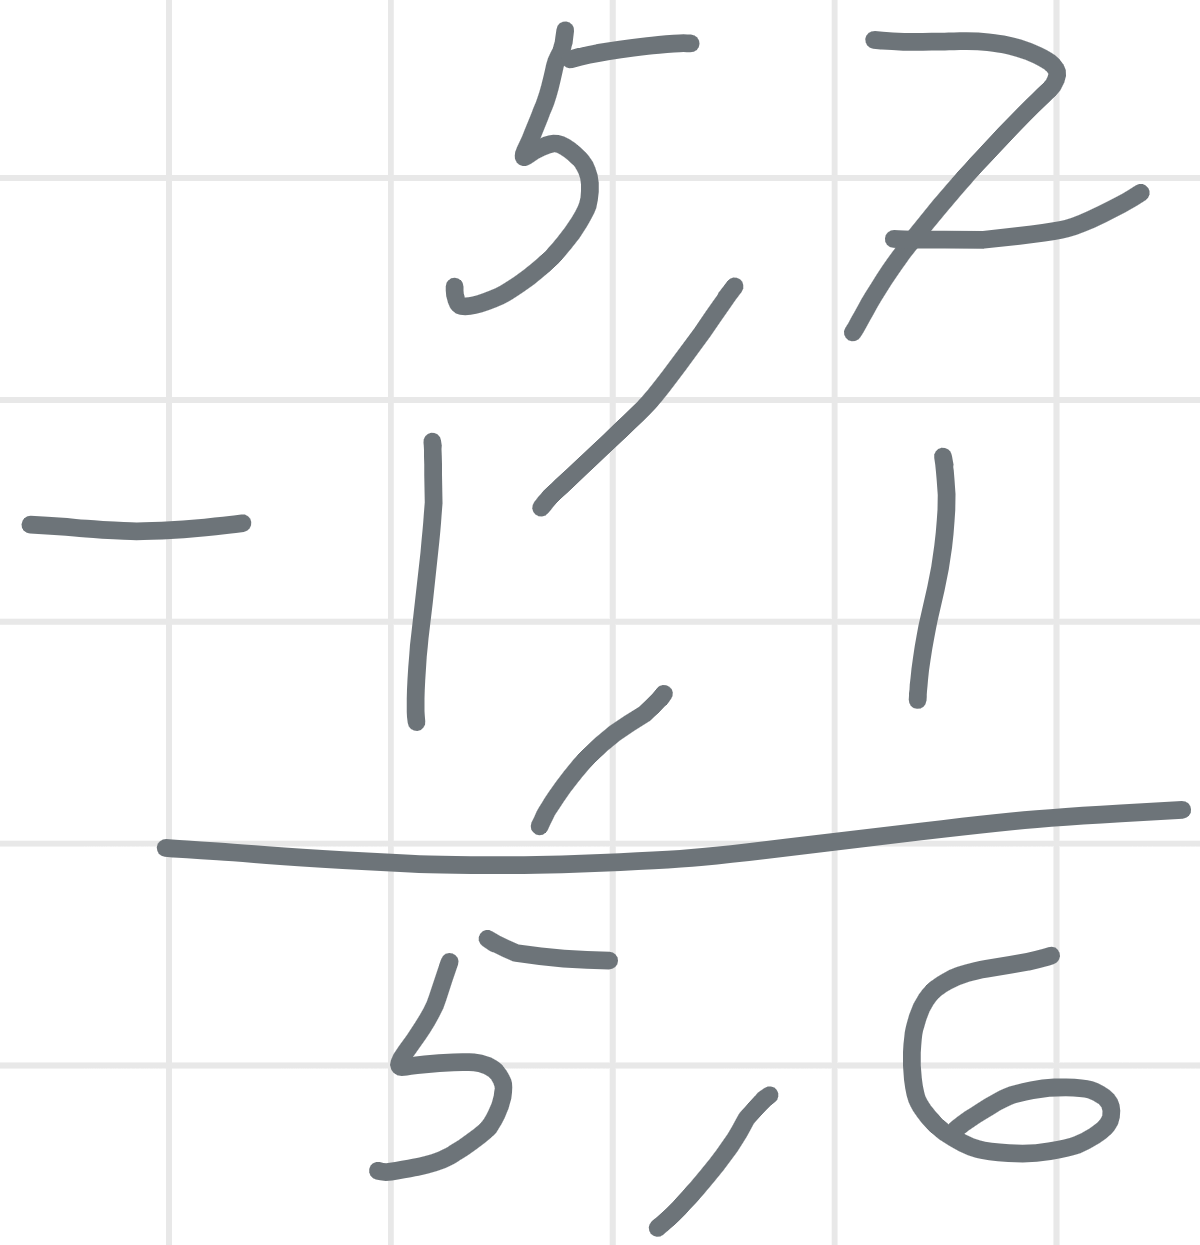 5,7
- 1,1
5,6